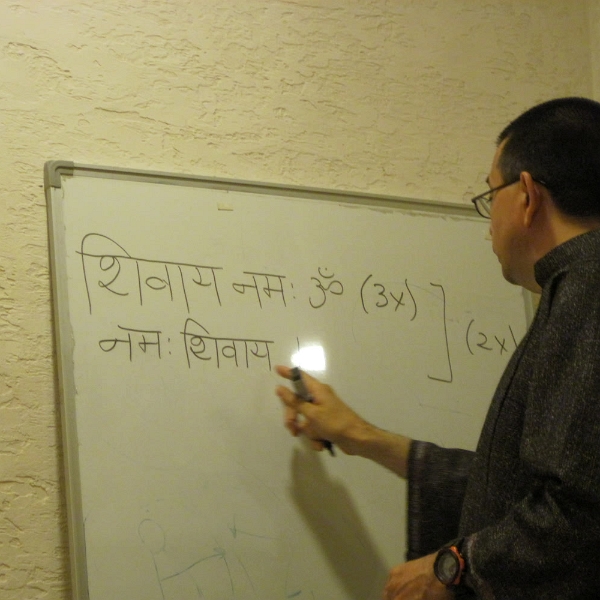 शिवाय नमः ॐ (3x)
नमः शिवाय । (2x)